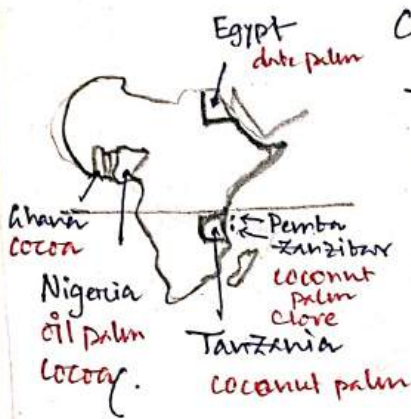 Egypt
date palm
C
Ghana
cocoa
Nigeria
oil palm
cocoa.
Pemba
Zanzibar
coconut
palm
clove
Tanzania
coconut palm